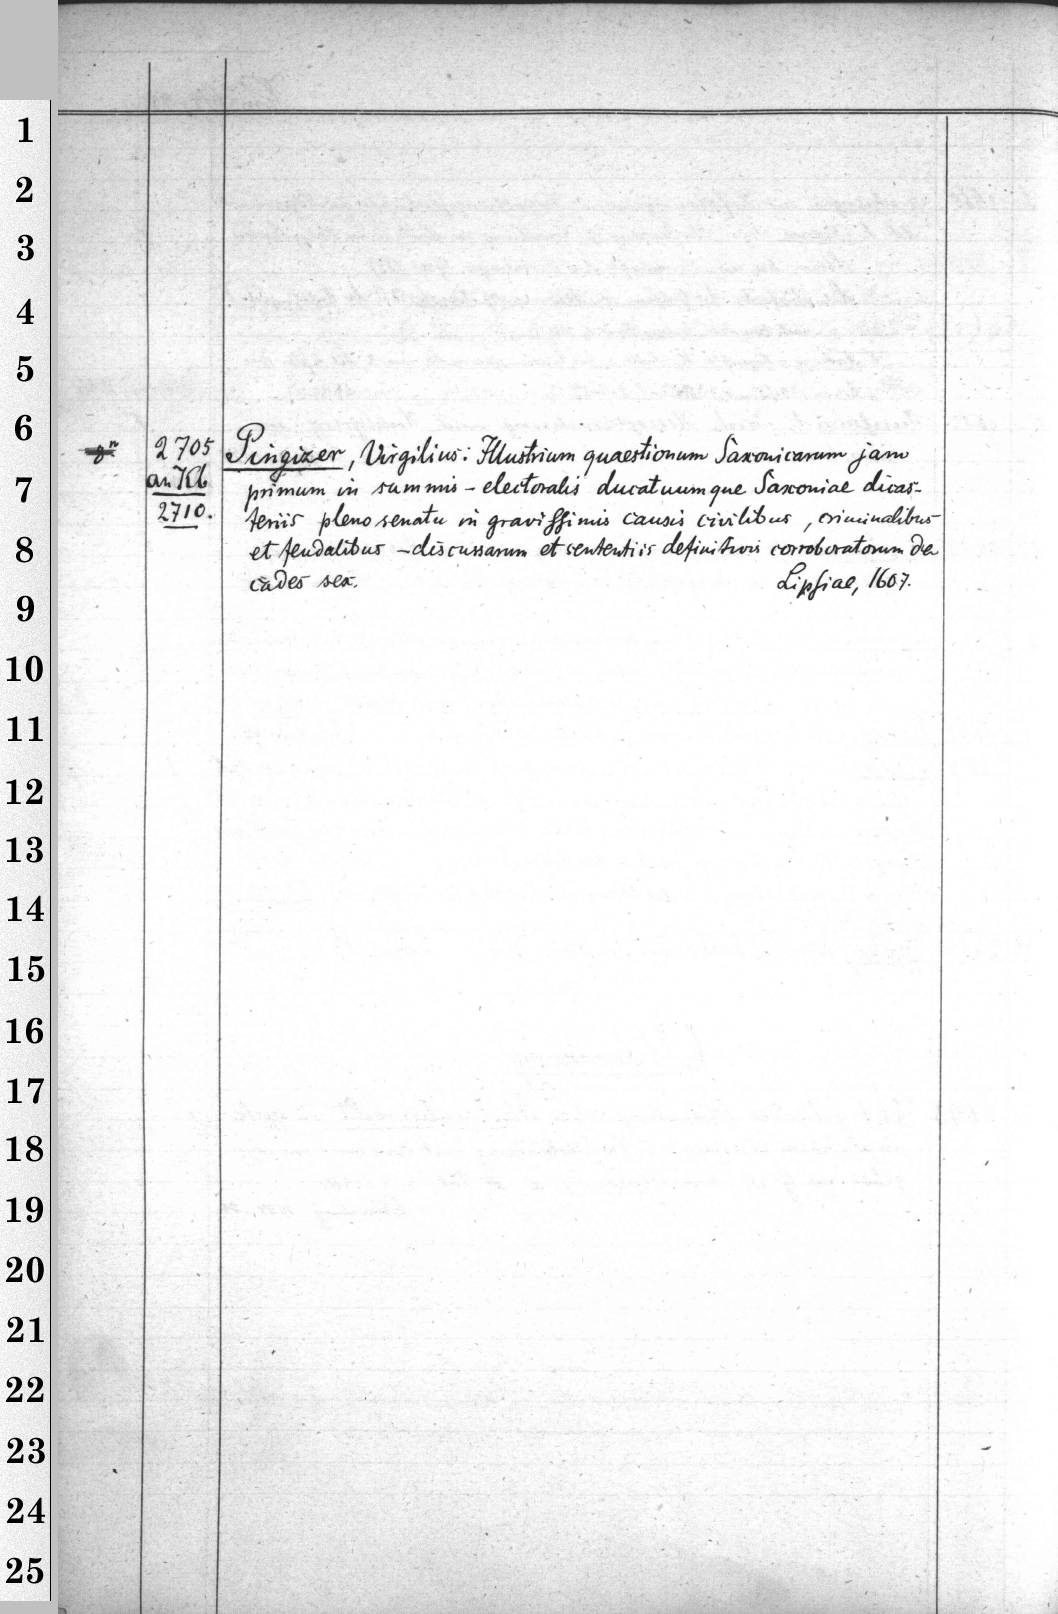 1
2
3
4
5
6
7
8
9
10
11
12
13
14
15
16
17
18
19
20
21
22
23
24
25
2705 Pingizer, Virgilius: Illustrium quaestionum Saxonicarum jam
an Kb primum in summis - electoralis ducatuumque Saxoniae dicas-
2710. teriis pleno senatu in gravissimis causis civilibus, criminalibus
et feudalibus - discussarum et sententiis definitivis corroboratorum de
cades sex. Lipsiae, 1607.